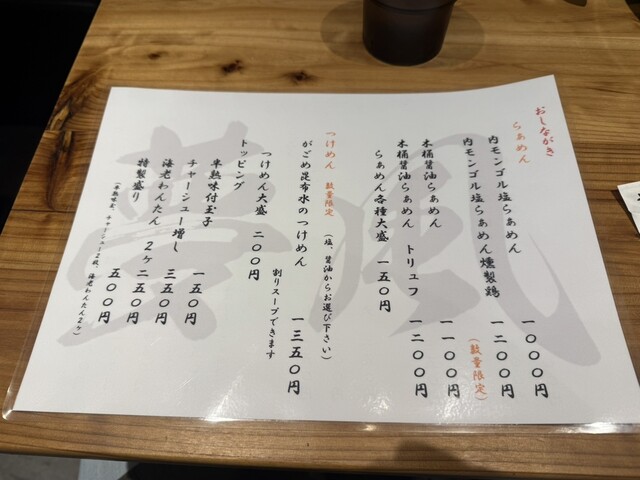 おしながき
らぁめん
内モンゴル塩らぁめん 一〇〇〇円
内モンゴル塩らぁめん燻製鶏 一二〇〇円
(数量限定)
木桶醤油らぁめん 一一〇〇円
木桶醤油らぁめん トリュフ 一二〇〇円
らぁめん各種大盛 一五〇円
つけめん 数量限定 (塩、醤油からお選び下さい)
がごめ昆布水のつけめん 一三五〇円
割りスープできます
つけめん大盛 二〇〇円
トッピング
半熟味付玉子 一五〇円
チャーシュー増し 三五〇円
海老わんたん 2ヶ 二五〇円
特製盛り 五〇〇円
(半熟味玉、チャーシュー2枚、海老わんたん2ヶ)
夢風